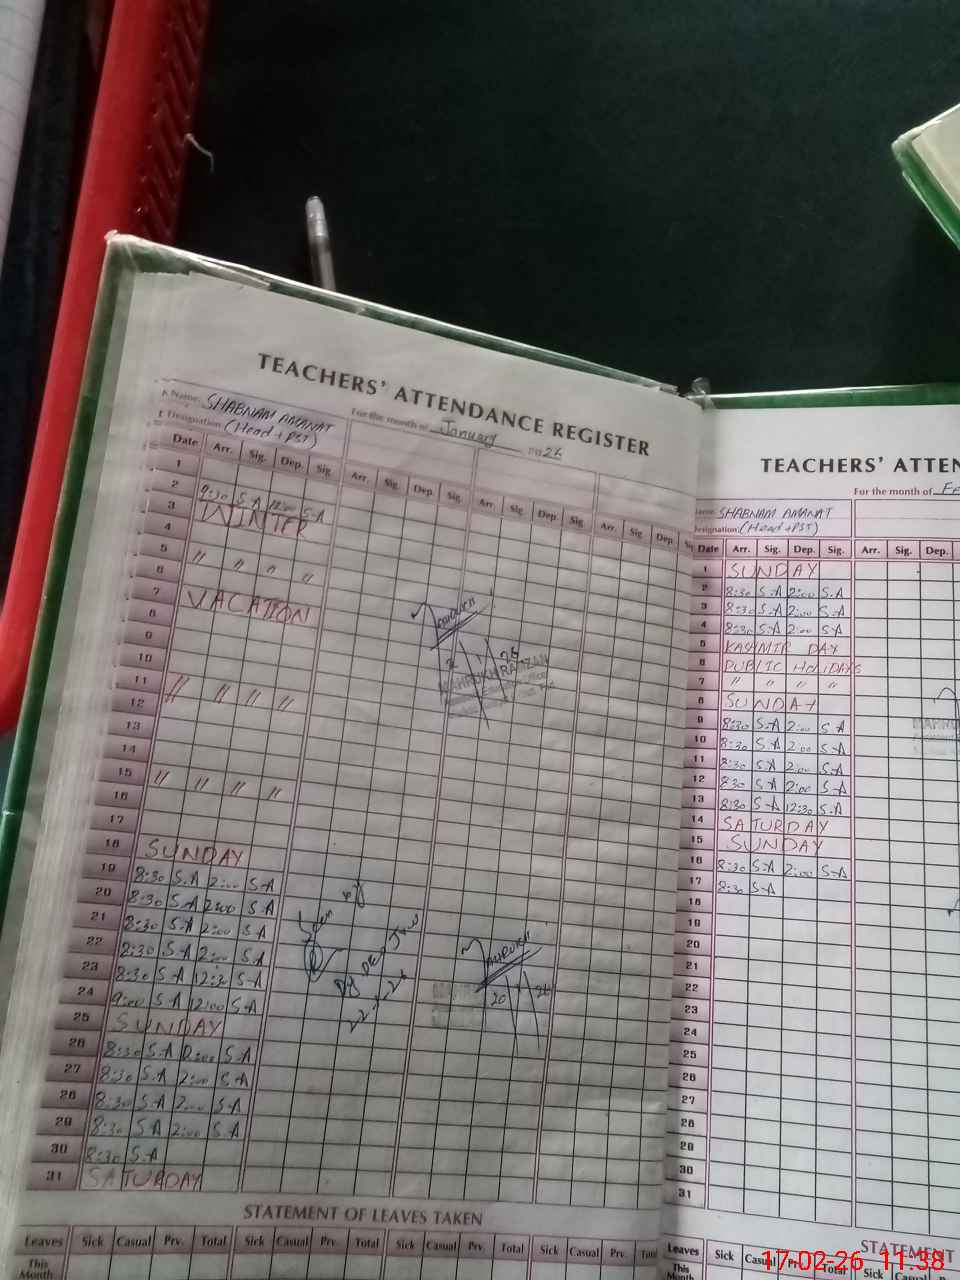 TEACHERS' ATTENDANCE REGISTER
Name: SHABNAM AMANAT
Designation (Head+PST)
For the month of January 2026
Date Arr. Sig. Dep. Sig. Arr. Sig. Dep. Sig. Arr. Sig. Dep. Sig. Arr. Sig. Dep.
1
2
3 WINTER
4
5 " " " "
6
7 VACATION
8
9
10
11 " " " "
12
13
14
15 " " " "
16
17
18 SUNDAY
19 8:30 S.A 2:00 S.A
20 8:30 S.A 2:00 S.A
21 8:30 S.A 2:00 S.A
22 2:30 S.A 2:00 S.A
23 8:30 S.A 12:30 S.A
24 9:00 S.A 12:00 S.A
25 SUNDAY
26 8:30 S.A 2:00 S.A
27 8:30 S.A 2:00 S.A
28 8:30 S.A 2:00 S.A
29 8:30 S.A 2:00 S.A
30 8:30 S.A
31 SATURDAY
MAHRUKH RAMZAN
STATEMENT OF LEAVES TAKEN
Leaves Sick Casual Prv. Total Sick Casual Prv. Total Sick Casual Prv.
This
Month
TEACHERS' ATTEN
For the month of Fe
Name: SHABNAM AMANAT
Designation: (Head+PST)
Date Arr. Sig. Dep. Sig. Arr. Sig. Dep.
1 SUNDAY
2 8:30 S.A 2:00 S.A
3 8:30 S.A 2:00 S.A
4 8:30 S.A 2:00 S.A
5 KASHMIR DAY
6 PUBLIC HOLIDAYS
7 " " " "
8 SUNDAY
9 8:30 S.A 2:00 S.A
10 8:30 S.A 2:00 S.A
11 8:30 S.A 2:00 S.A
12 8:30 S.A 2:00 S.A
13 8:30 S.A 12:30 S.A
14 SATURDAY
15 SUNDAY
16 8:30 S.A 2:00 S.A
17 8:30 S.A
18
19
20
21
22
23
24
25
26
27
28
29
30
31
STATEMENT
Leaves Sick Casual Prv. Total Sick Casual
This
Month
17-02-26 11:38